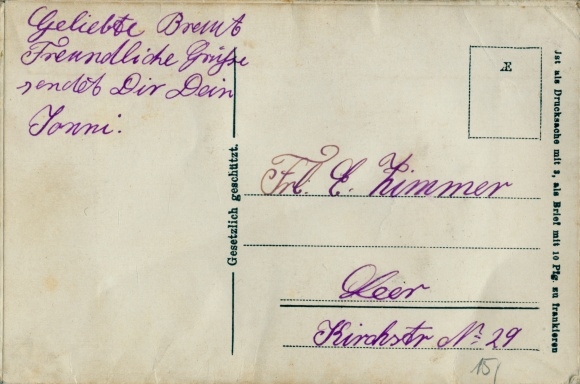 Geliebte Breut
Freundliche Grüße
sendet Dir Dein
Jonni.
Gesetzlich geschützt.
Æ
Ist als Drucksache mit 3, als Brief mit 10 Pfg. zu frankieren
Frl. C. Zimmer
Leer
Kirchstr No 29
15/